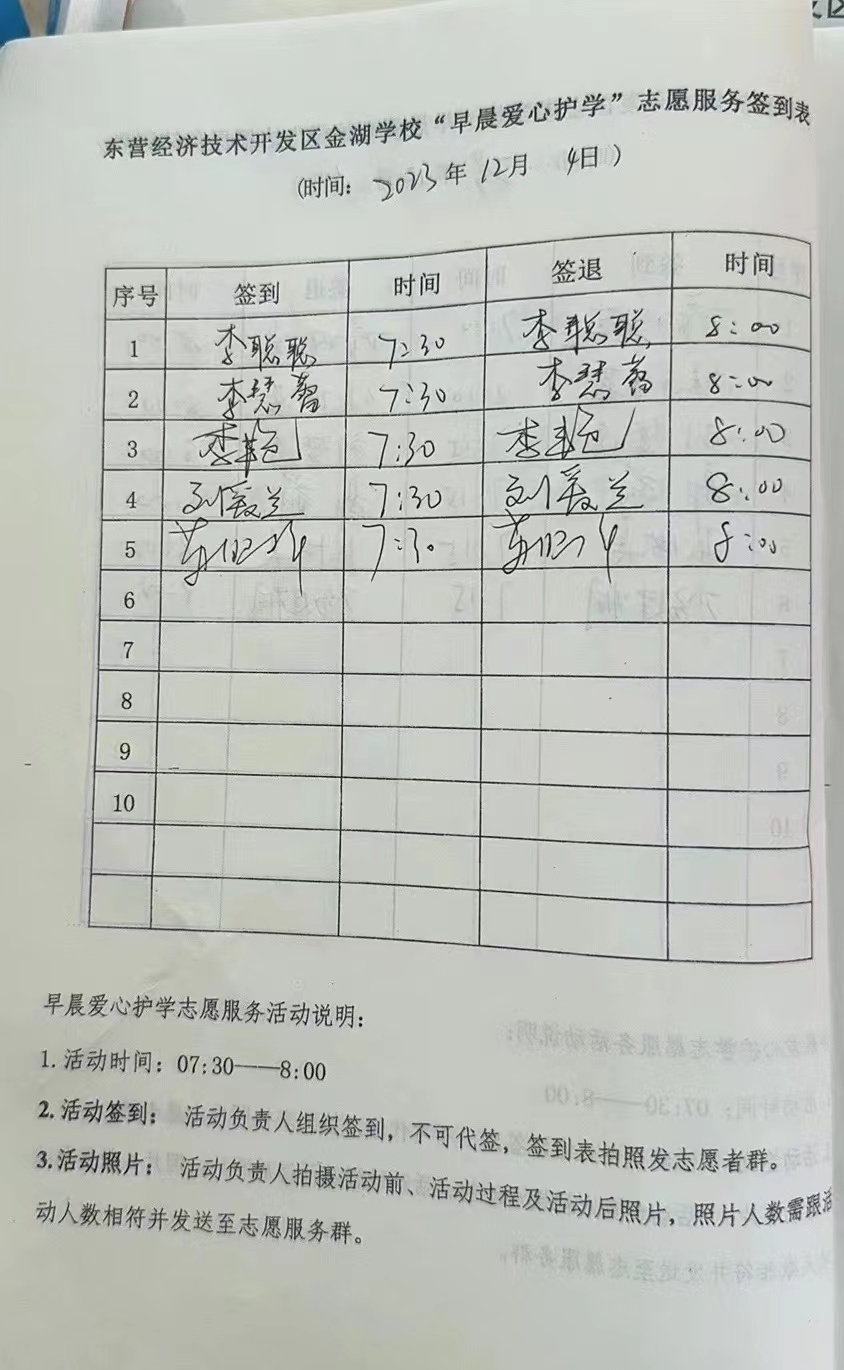 东营经济技术开发区金湖学校“早晨爱心护学”志愿服务签到表
(时间: 2023年12月 4日)
序号 签到 时间 签退 时间
1 李聪聪 7:30 李聪聪 8:00
2 李慧 7:30 李慧 8:00
3 李艳 7:30 李艳 8:00
4 刘爱兰 7:30 刘爱兰 8:00
5 7:30 8:00
6
7
8
9
10
早晨爱心护学志愿服务活动说明:
1.活动时间: 07:30——8:00
2.活动签到: 活动负责人组织签到,不可代签,签到表拍照发志愿者群。
3.活动照片: 活动负责人拍摄活动前、活动过程及活动后照片,照片人数需跟活
动人数相符并发送至志愿服务群。